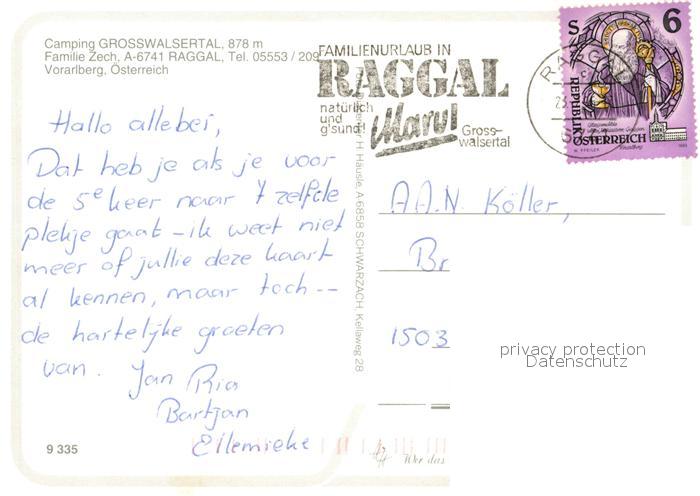 Camping GROSSWALSERTAL, 878 m
Familie Zech, A-6741 RAGGAL, Tel. 05553 / 209
Vorarlberg, Österreich
FAMILIENURLAUB IN
RAGGAL
natürlich
und
g'sund
Marul
Gross-
walsertal
RAGG
S 6
REPUBLIK
ÖSTERREICH
Hallo allebei,
Dat heb je als je voor
de 5e keer naar 't zelfde
plekje gaat - ik weet niet
meer of jullie deze kaart
al kennen, maar toch --
de hartelijke groeten
van. Jan Ria
Bartjan
Ellemieke
9 335
H. Häusle, A-6858 SCHWARZACH, Kellaweg 28
A.A.N. Köller,
Br
1503
privacy protection
Datenschutz
Wer das